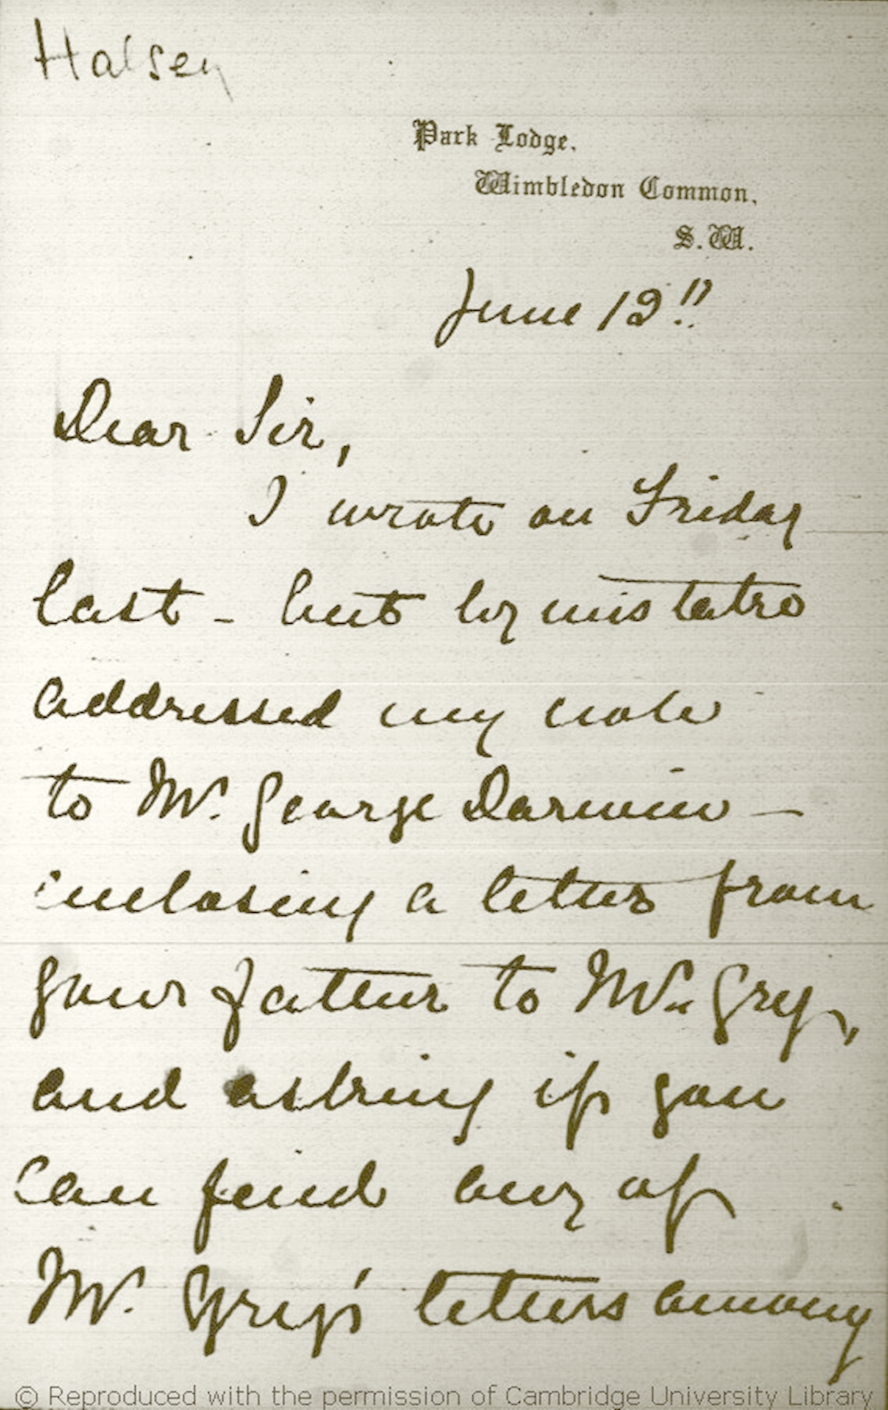 Halsey
Park Lodge,
Wimbledon Common,
S.W.
June 12"
Dear Sir,
I wrote on Friday
last - but by mistake
addressed my note
to Mr. George Darwin —
inclosing a letter from
your father to Mr. Greg,
and asking if you
can find any of
Mr. Greg's letters among
© Reproduced with the permission of Cambridge University Library